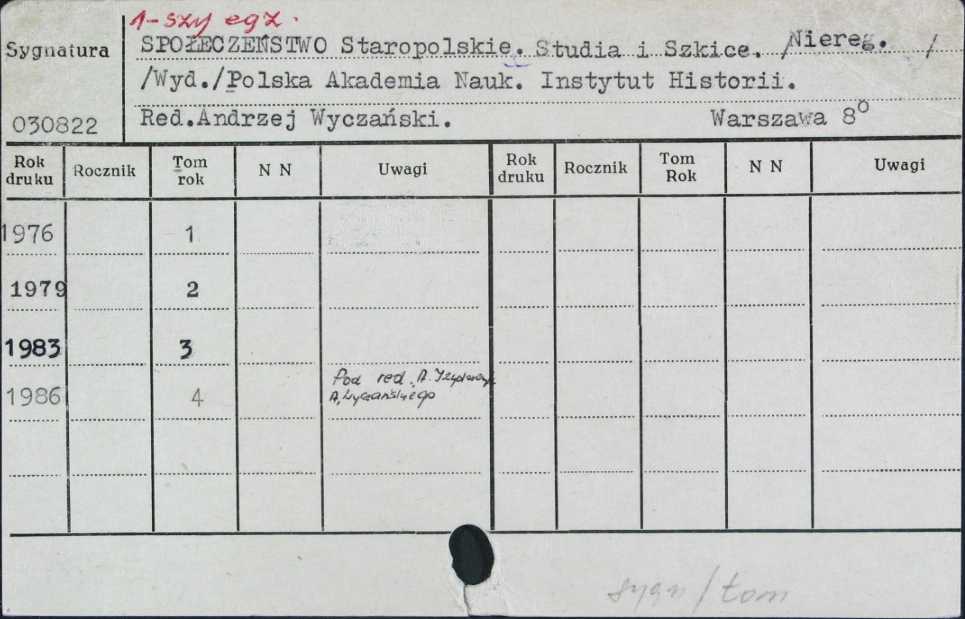 1-szy egz.
Sygnatura
SPOŁECZEŃSTWO Staropolskie. Studia i Szkice. /Niereg. /
/Wyd./Polska Akademia Nauk. Instytut Historii.
030822
Red.Andrzej Wyczański. Warszawa 8°
Rok druku Rocznik Tom rok N N Uwagi Rok druku Rocznik Tom Rok N N Uwagi
1976 1
1979 2
1983 3
1986 4 Pod red. A.
A. Wyczańskiego
sygn/tom